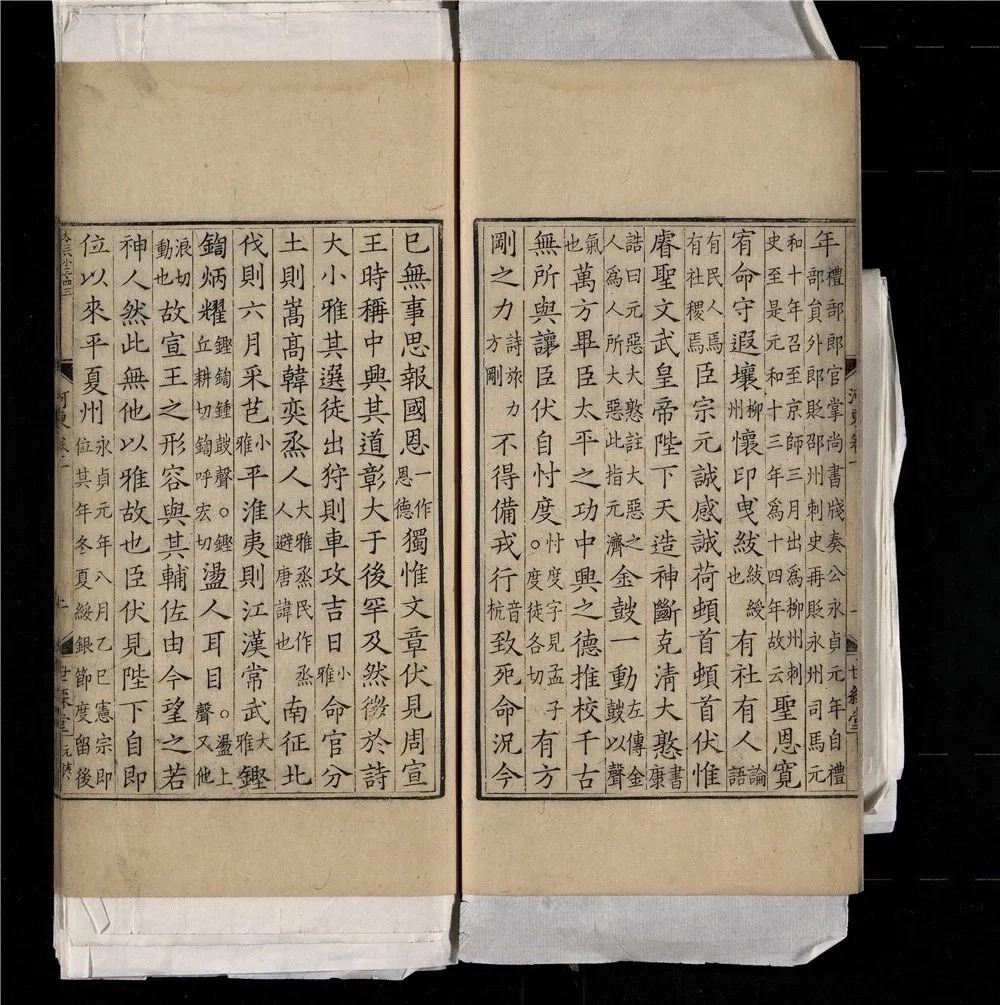 年禮部郎官掌尚書牋奏公永貞元年自禮部員外郎貶邵州刺史再貶永州司馬元
和十年召至京師三月出為柳州刺史至是元和十三年為十四年故云聖恩寬
宥命守遐壤柳州懷印曳紱紱綬也有社有人論語
有民人焉有社稷焉臣宗元誠感誠荷頓首頓首伏惟
睿聖文武皇帝陛下天造神斷克清大憝書康
誥曰元惡大憝註大惡之人為人所大惡此指元濟金鼓一動左傳金鼓以聲
氣也萬方畢臣太平之功中興之德推校千古
無所與讓臣伏自忖度。忖度字見孟子度徒各切有方
剛之力詩旅力方剛不得備戎行音杭致死命況今
已無事思報國恩一作恩德獨惟文章伏見周宣
王時稱中興其道彰大于後罕及然徵於詩
大小雅其選徒出狩則車攻吉日小雅命官分
土則嵩高韓奕烝人大雅烝民作烝人避唐諱也南征北
伐則六月采芑小雅平淮夷則江漢常武大雅鏗
鍧炳耀鏗鍧鍾鼓聲。鏗丘耕切鍧呼宏切盪人耳目。盪上聲又他
浪切動也故宣王之形容與其輔佐由今望之若
神人然此無他以雅故也臣伏見陛下自即
位以來平夏州永貞元年八月乙巳憲宗即位其年冬夏綏銀節度留後